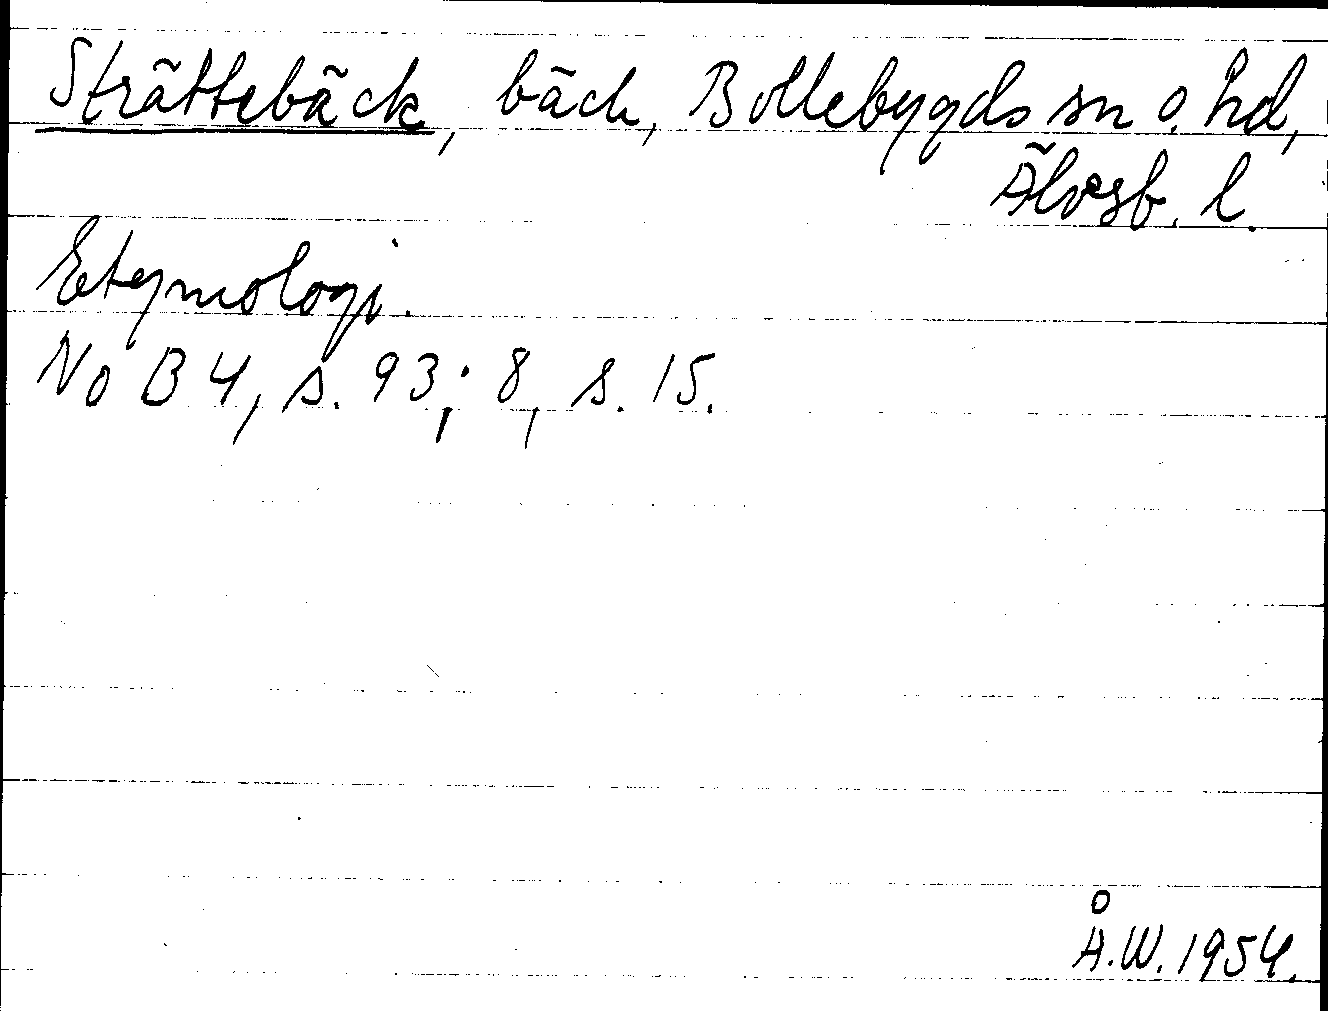 Strättebäck, bäck, Bollebygds sn o. hd,
Älvsb. l.
Etymologi.
NoB 4, s. 93; 8, s. 15.
Å.W. 1954.